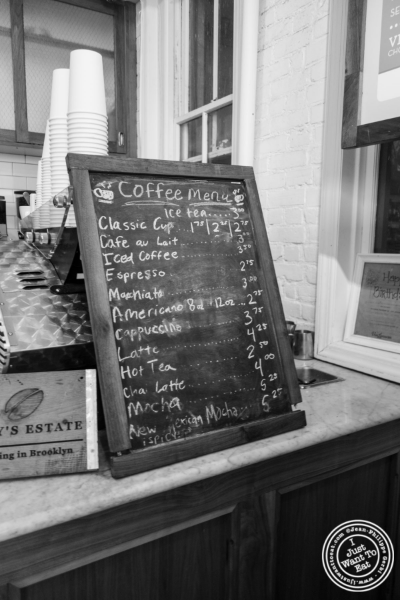 Coffee Menu
Ice tea..... 3.00
Classic Cup 1.75 | 2.00 | 2.50
Cafe au Lait
Iced Coffee
Espresso 2.75
Machiato 3.00
Americano 8oz / 12oz 2.75
Cappuccino 3.75
Latte 4.25
Hot Tea 2.50
Chai Latte 4.00
Mocha 5.25
New Mexican Mocha 5.25
Y'S ESTATE
ing in Brooklyn
SE
VI
I
Just
Want To
Eat